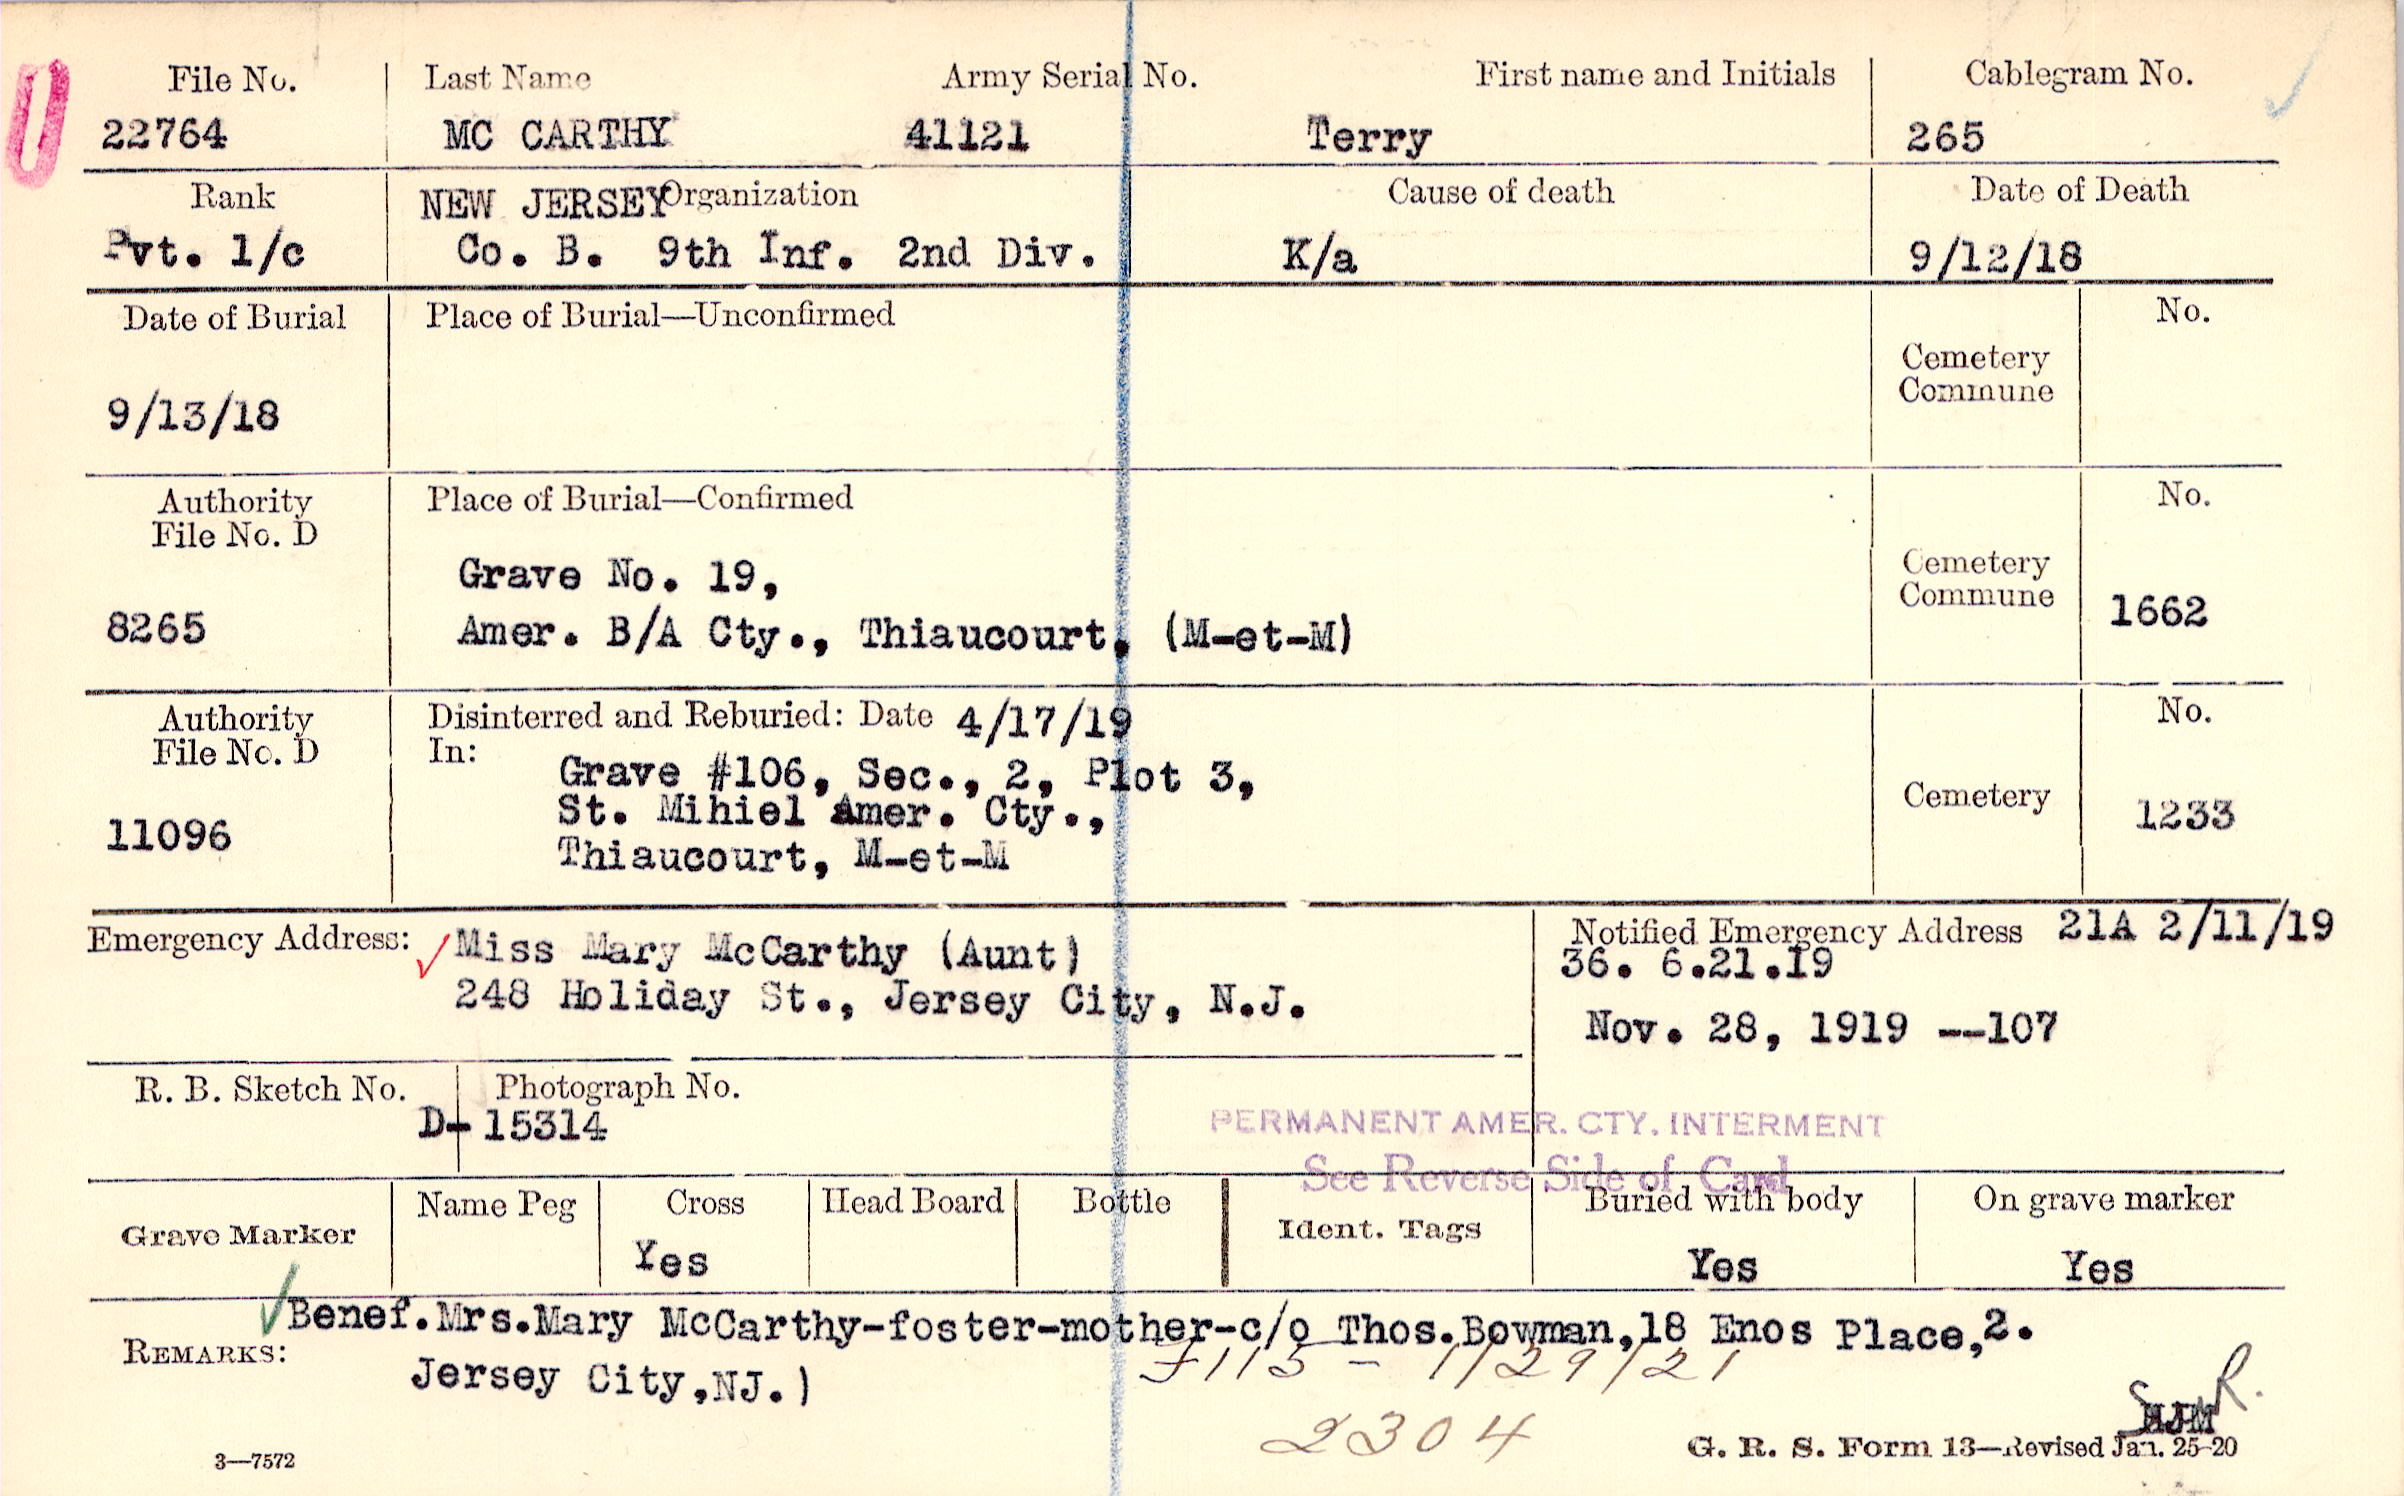 File No. Last Name Army Serial No. First name and Initials Cablegram No.
22764 MC CARTHY 41121 Terry 265
Rank NEW JERSEY Organization Cause of death Date of Death
Pvt. 1/c Co. B. 9th Inf. 2nd Div. K/a 9/12/18
Date of Burial Place of Burial—Unconfirmed No.
Cemetery
Commune
9/13/18
Authority Place of Burial—Confirmed No.
File No. D
Grave No. 19, Cemetery
Commune
8265 Amer. B/A Cty., Thiaucourt, (M-et-M) 1662
Authority Disinterred and Reburied: Date 4/17/19 No.
File No. D In:
Grave #106, Sec., 2, Plot 3,
St. Mihiel Amer. Cty., Cemetery 1233
11096 Thiaucourt, M-et-M
Emergency Address: Miss Mary McCarthy (Aunt) Notified Emergency Address 21A 2/11/19
36. 6.21.19
248 Holiday St., Jersey City, N.J.
Nov. 28, 1919 --107
R. B. Sketch No. Photograph No.
D-15314 PERMANENT AMER. CTY. INTERMENT
See Reverse Side of Card
Name Peg Cross Head Board Bottle Buried with body On grave marker
Grave Marker Ident. Tags
Yes Yes Yes
Benef.Mrs.Mary McCarthy-foster-mother-c/o Thos.Bowman,18 Enos Place,2.
REMARKS: 1/29/21
Jersey City,NJ.)
2304
HJM
3—7572 G. R. S. Form 13—Revised Jan. 25-20